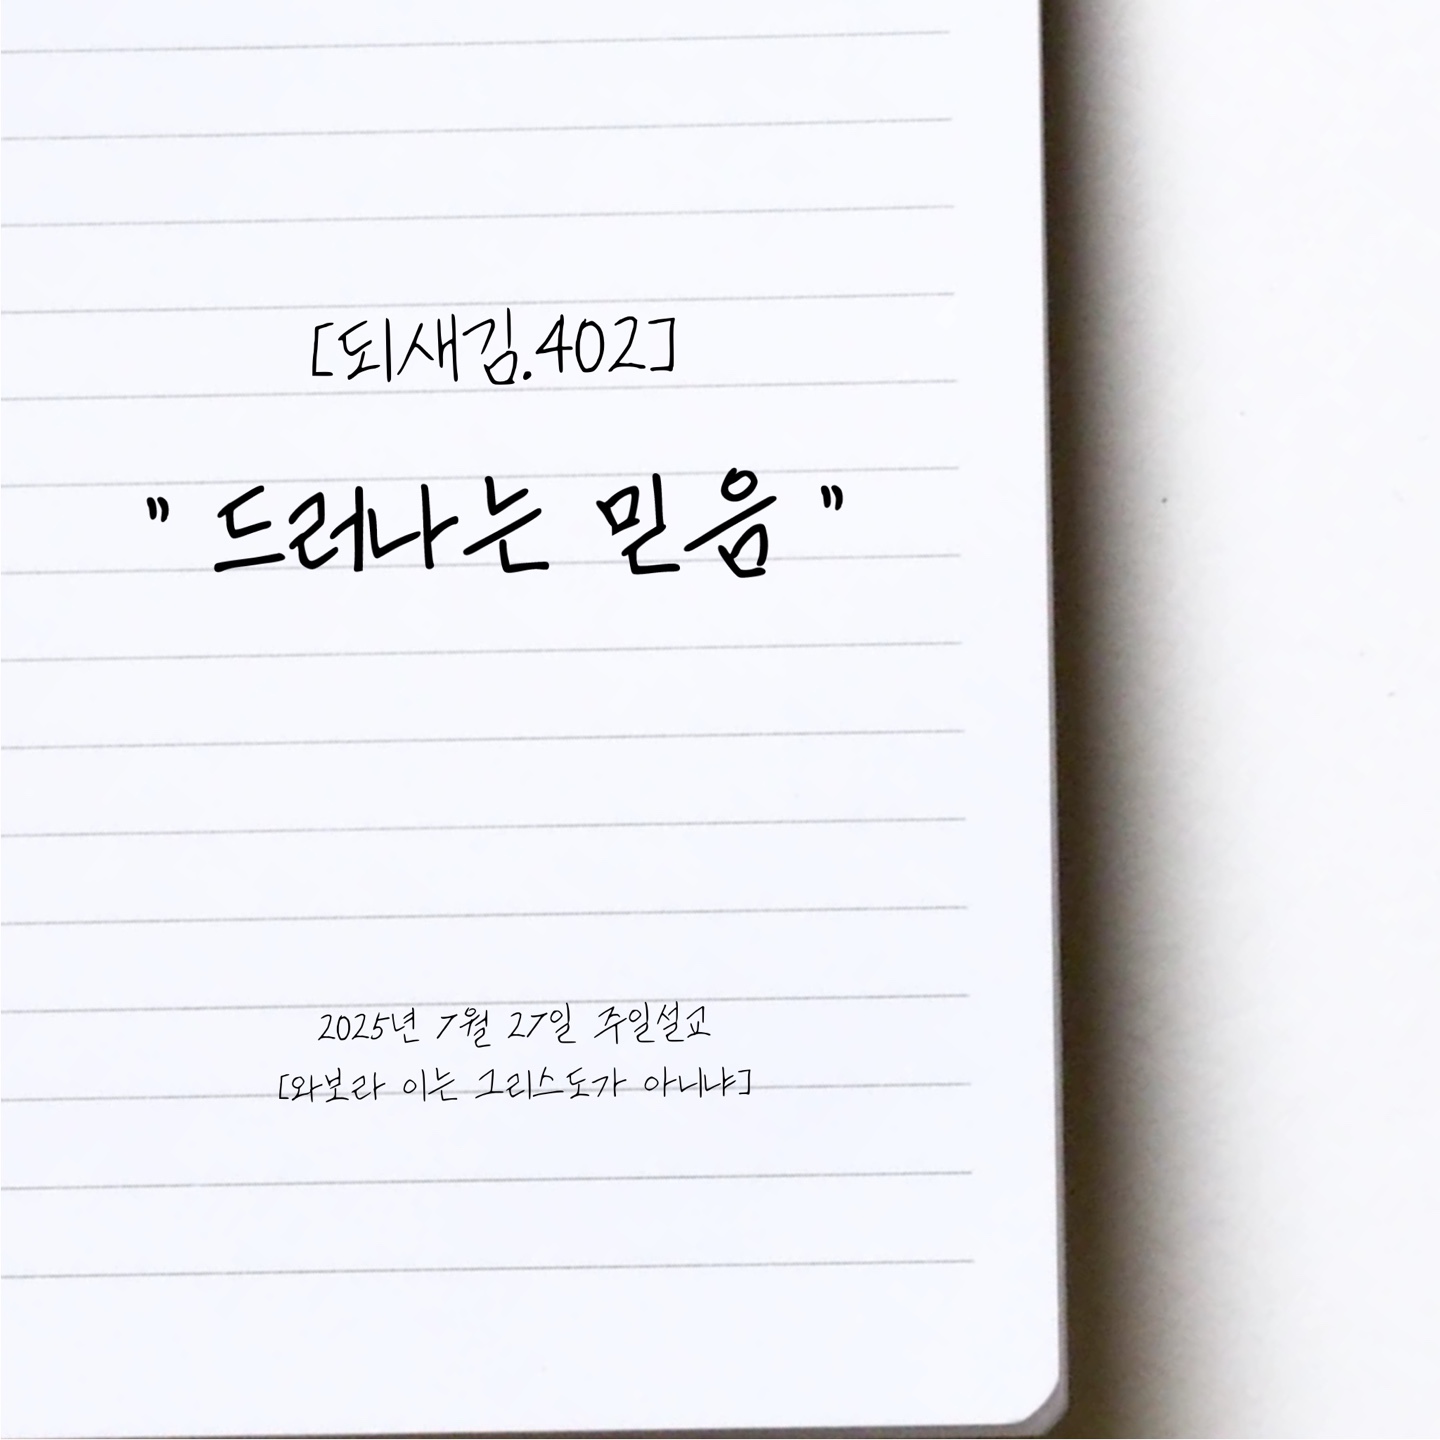 [되새김.402]
" 드러나는 믿음 "
2025년 7월 27일 주일설교
[와보라 이는 그리스도가 아니냐]